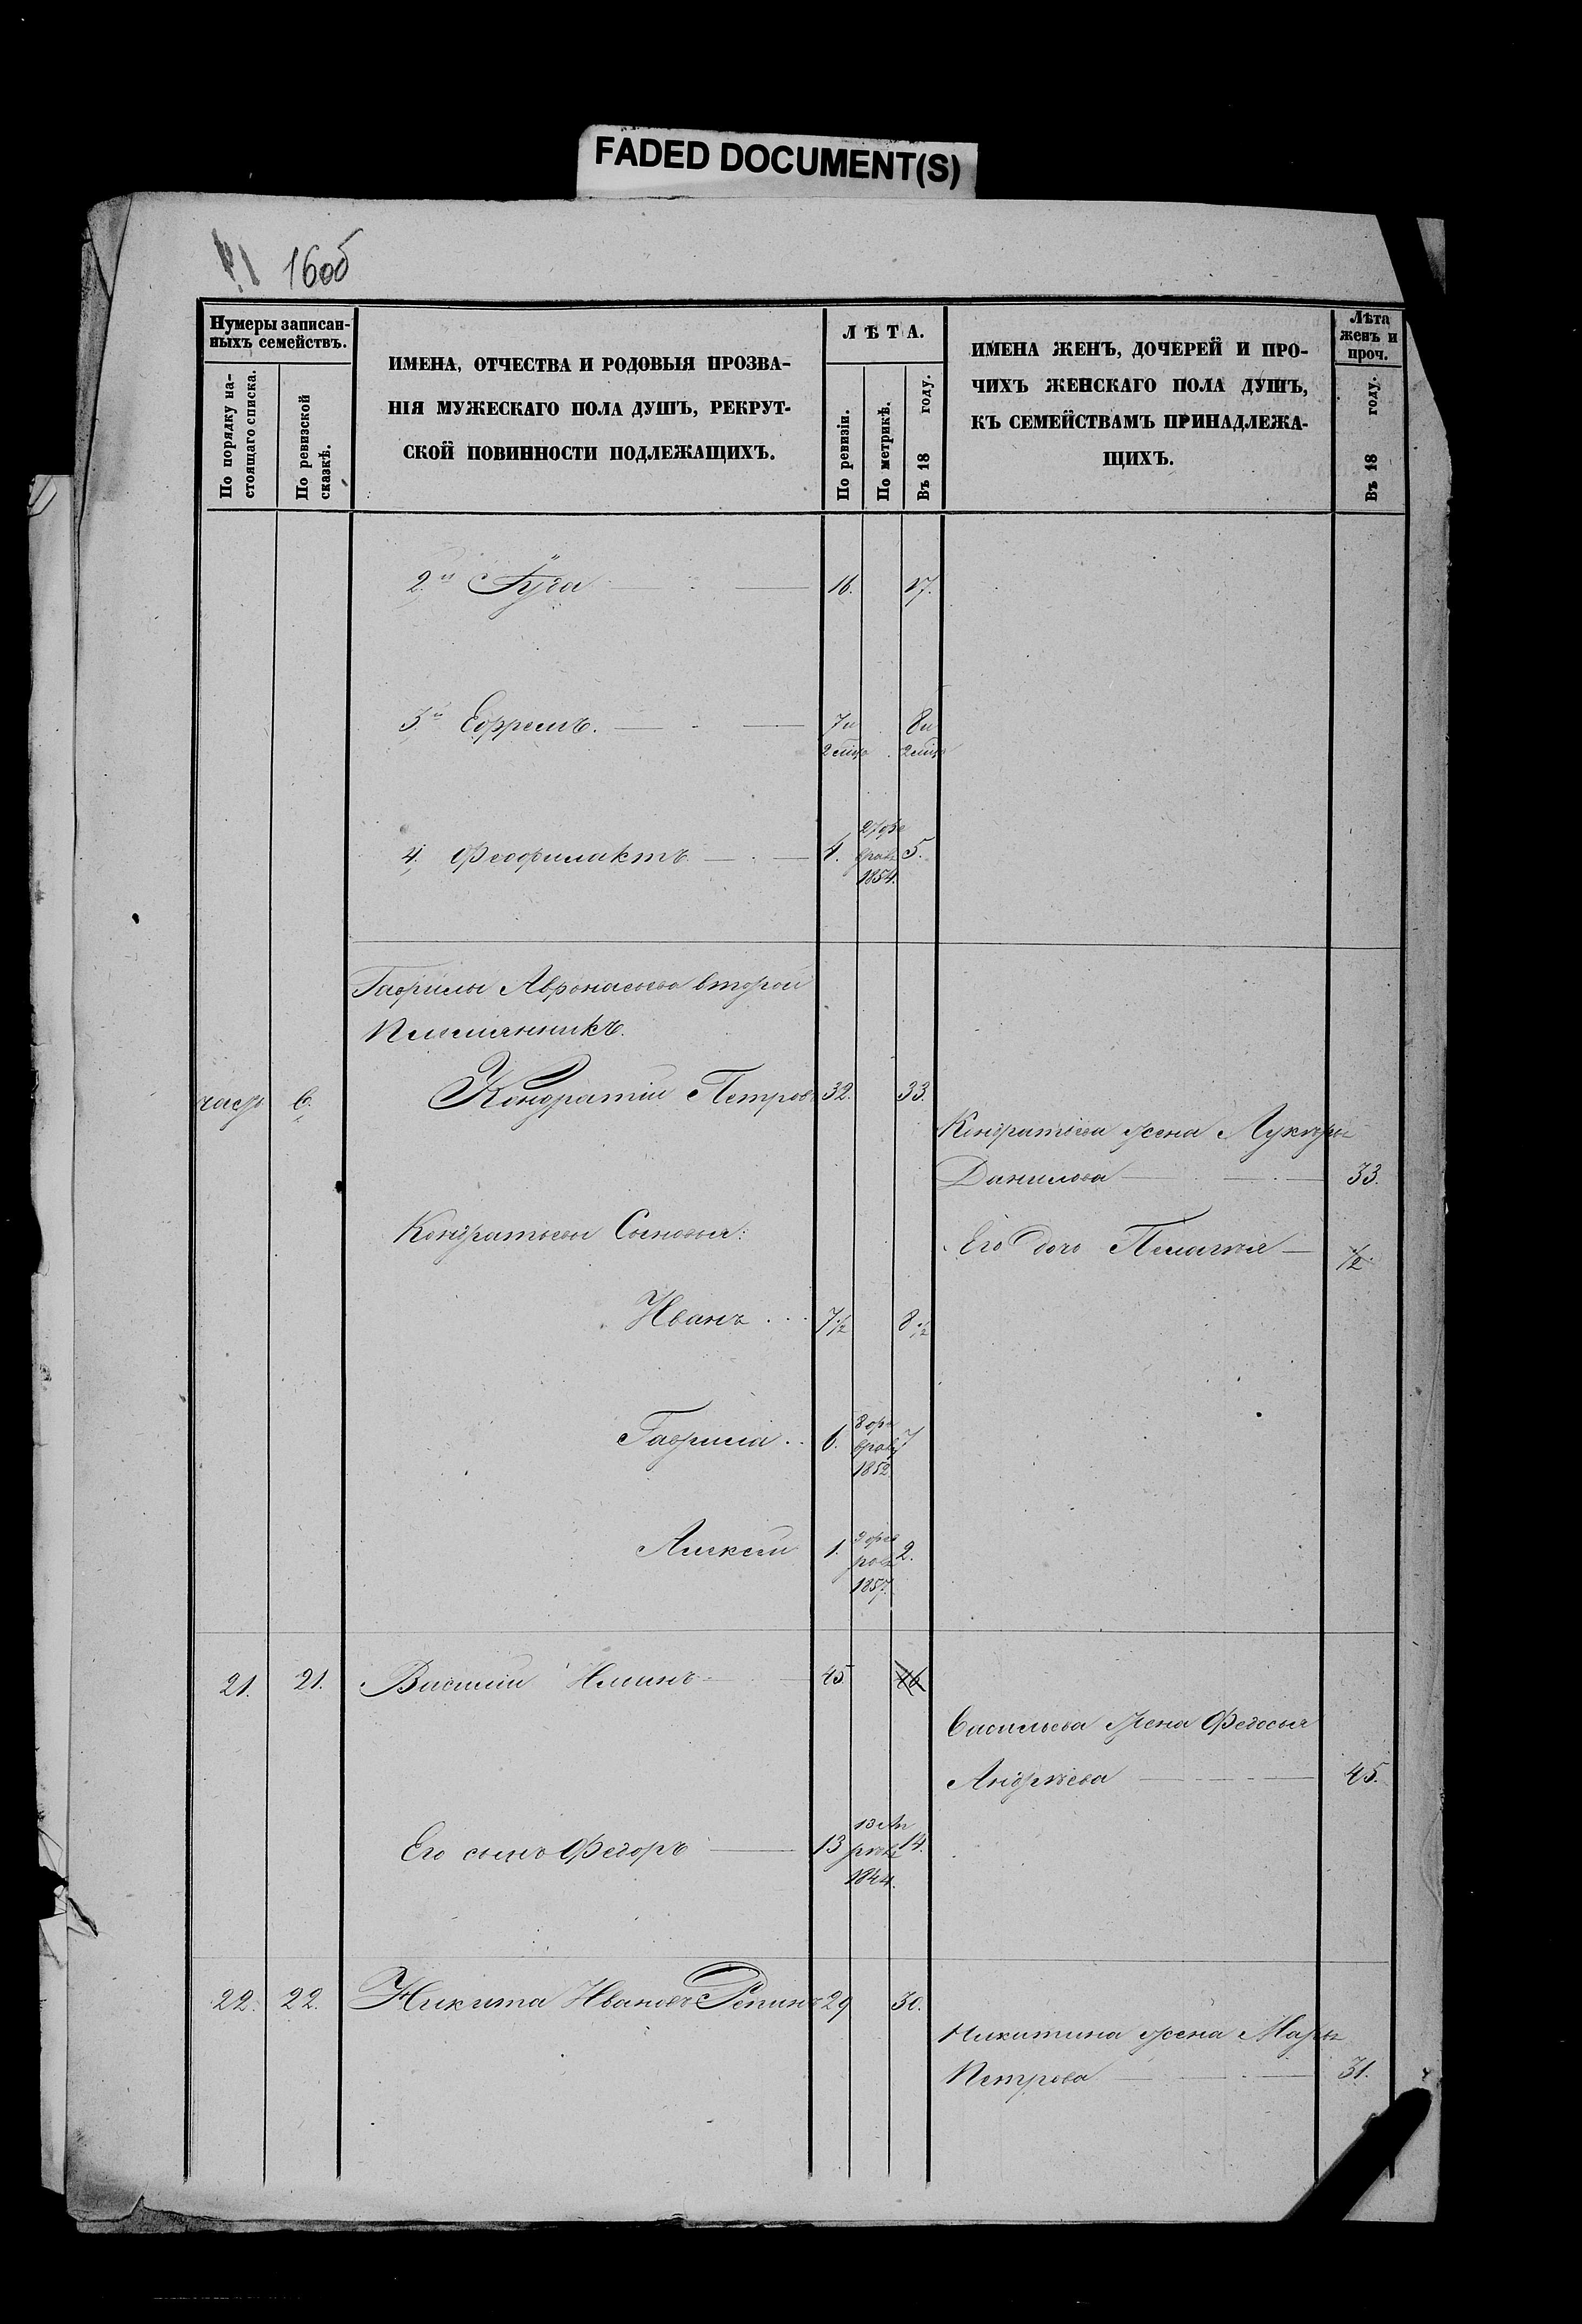 FADED DOCUMENT(S)
16об
Нумеры записан-
ныхъ семействъ.
По порядку на-
стоящаго списка.
По ревизской
сказкѣ.
ИМЕНА, ОТЧЕСТВА И РОДОВЫЯ ПРОЗВА-
НІЯ МУЖЕСКАГО ПОЛА ДУШЪ, РЕКРУТ-
СКОЙ ПОВИННОСТИ ПОДЛЕЖАЩИХЪ.
ЛѢТА.
По ревизіи.
По метрикѣ.
Въ 18 году.
ИМЕНА ЖЕНЪ, ДОЧЕРЕЙ И ПРО-
ЧИХЪ ЖЕНСКАГО ПОЛА ДУШЪ,
КЪ СЕМЕЙСТВАМЪ ПРИНАДЛЕЖА-
ЩИХЪ.
Лѣта
женъ и
проч.
Въ 18 году.
2й 16. 17.
3й Ефремъ. 7и 8и
2 мѣс 2 мѣс
4, Феофилактъ 4. 27 фе 5.
враля
1854.
Гаврилы Афонасьева второй
Племянникъ.
часть 6. Кондратій Петровъ 32. 33.
Кондратьева жена Лукерья
Данилова 33.
Кондратьевы Сыновья:
Его дочь Пелагѣя 1/2
Иванъ 7 1/2 8 1/2
Гаврила 6. 8 фе 7
враля
1852
Алексѣй 1. 9 фев 2.
раля
1857.
21. 21. Василій Ильинъ 45 46
Васильева жена Федосья
Андрѣева 45.
Его сынъ Федоръ 13 14.
1844.
22. 22. Никита Ивановъ Репинъ 29 30.
Никитина жена Марья
Петрова 31.